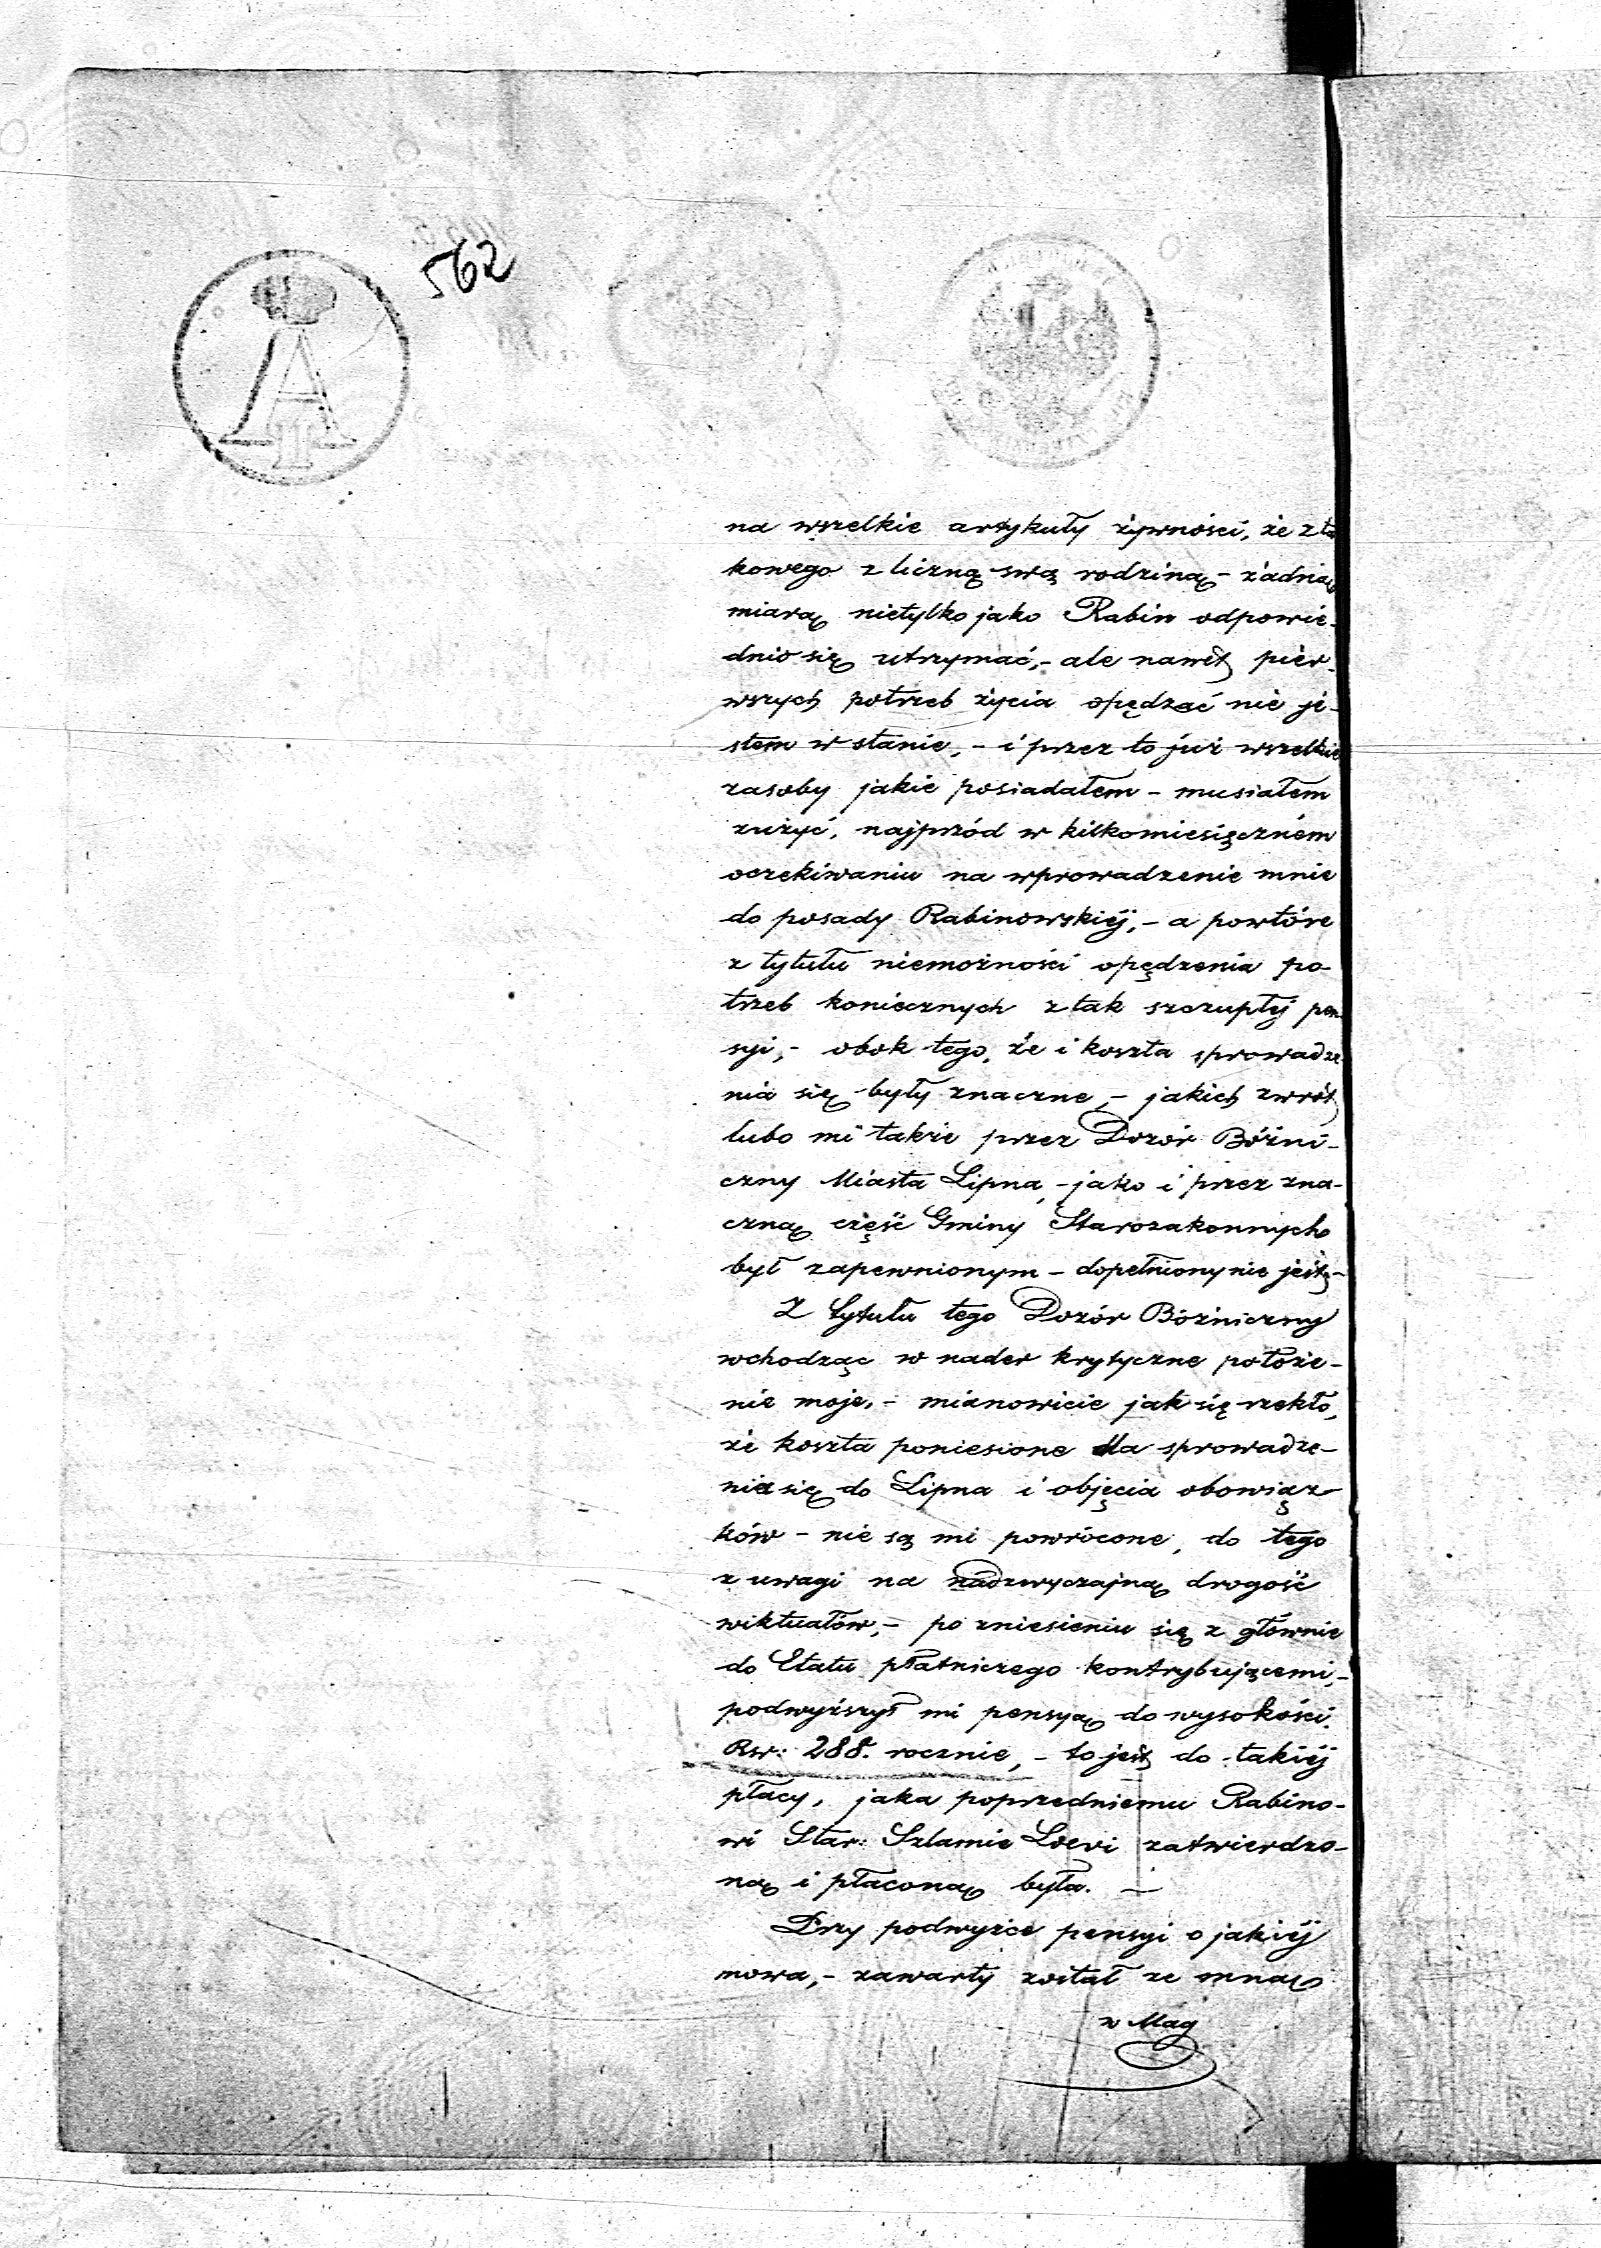 562
na wszelkie artykuły żywności, że z ta
kowego z liczną swą rodziną - żadną
miarą nietylko jako Rabin odpowie-
dnio się utrzymać, - ale nawet pier-
wszych potrzeb życia opędzać nie je-
stem w stanie, - i przez to już wszelkie
zasoby jakie posiadałem - musiałem
zużyć, najprzód w kilkomiesięczném
oczekiwaniu na wprowadzenie mnie
do posady Rabinowskiéj, - a powtóre
z tytułu niemożności opędzenia po-
trzeb koniecznych z tak szczupłéj pen-
syi, - obok tego, że i koszta sprowadze
nia się były znaczne, - jakich zwrót
lubo mi także przez Dozór Bóżni-
czny Miasta Lipna, - jako i przez zna-
czną część Gminy Starozakonnych
był zapewnionym - dopełniony nie jest, -
Z tytułu tego Dozór Bóżniczny
wchodząc w nader krytyczne położe-
nie moje, - mianowicie jak się rzekło,
że koszta poniesione dla sprowadze-
nia się do Lipna i objęcia obowiąz-
ków - nie są mi powrócone, do tego
z uwagi na nadzwyczajną drogość
wiktuałów, - po zniesieniu się z głównie
do Etatu płatniczego kontrybującemi, -
podwyższył mi pensyą do wysokości
Rsr: 288. rocznie, - to jest do takiéj
płacy, jaka poprzedniemu Rabino-
wi Star: Szlamie Loevi zatwierdzo-
ną i płaconą była. -
Przy podwyżce pensyi o jakiéj
mowa, - zawarty został ze mną
w Mag